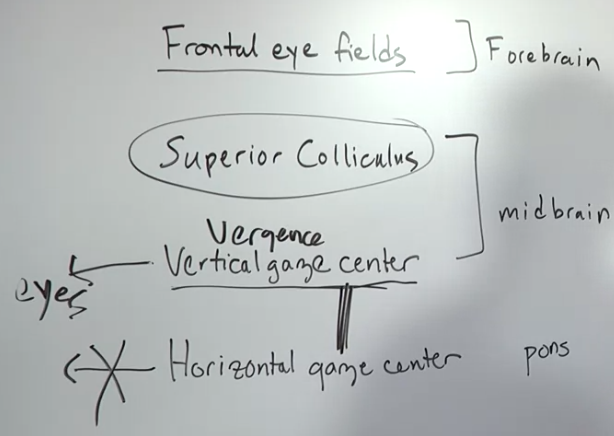 Frontal eye fields Forebrain
Superior Colliculus
midbrain
Vergence
Vertical gaze center
eyes
Horizontal gaze center pons